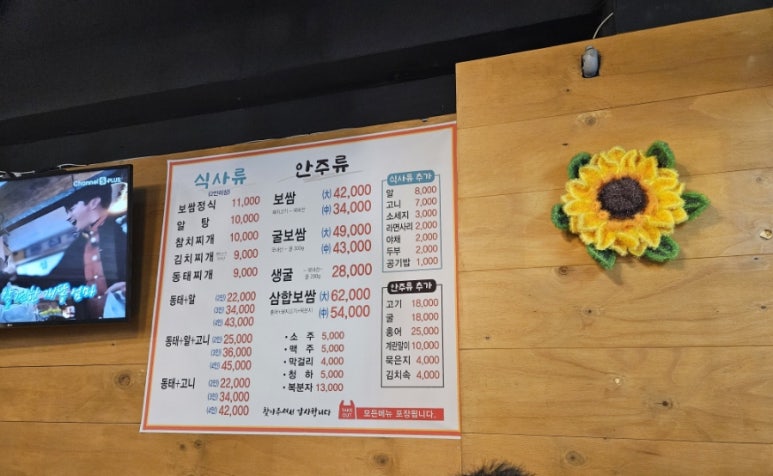 Channel S PLUS
식사류
보쌈정식 11,000
알 탕 10,000
참치찌개 10,000
김치찌개 9,000
동태찌개 9,000
동태+알 (2인) 22,000
(3인) 34,000
(4인) 43,000
동태+알+고니 (2인) 25,000
(3인) 36,000
(4인) 45,000
동태+고니 (2인) 22,000
(3인) 34,000
(4인) 42,000
안주류
보쌈 (大) 42,000
(中) 34,000
굴보쌈 (大) 49,000
(中) 43,000
생굴 28,000
삼합보쌈 (大) 62,000
(中) 54,000
• 소 주 5,000
• 맥 주 5,000
• 막걸리 4,000
• 청 하 5,000
• 복분자 13,000
찾아주셔서 감사합니다
TAKE OUT 모든메뉴 포장됩니다.
식사류 추가
알 8,000
고니 7,000
소세지 3,000
라면사리 2,000
야채 2,000
두부 2,000
공기밥 1,000
안주류 추가
고기 18,000
굴 18,000
홍어 25,000
계란말이 10,000
묵은지 4,000
김치속 4,000